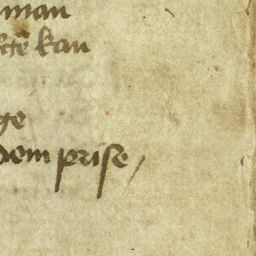 man
kan
ge
dem prise /